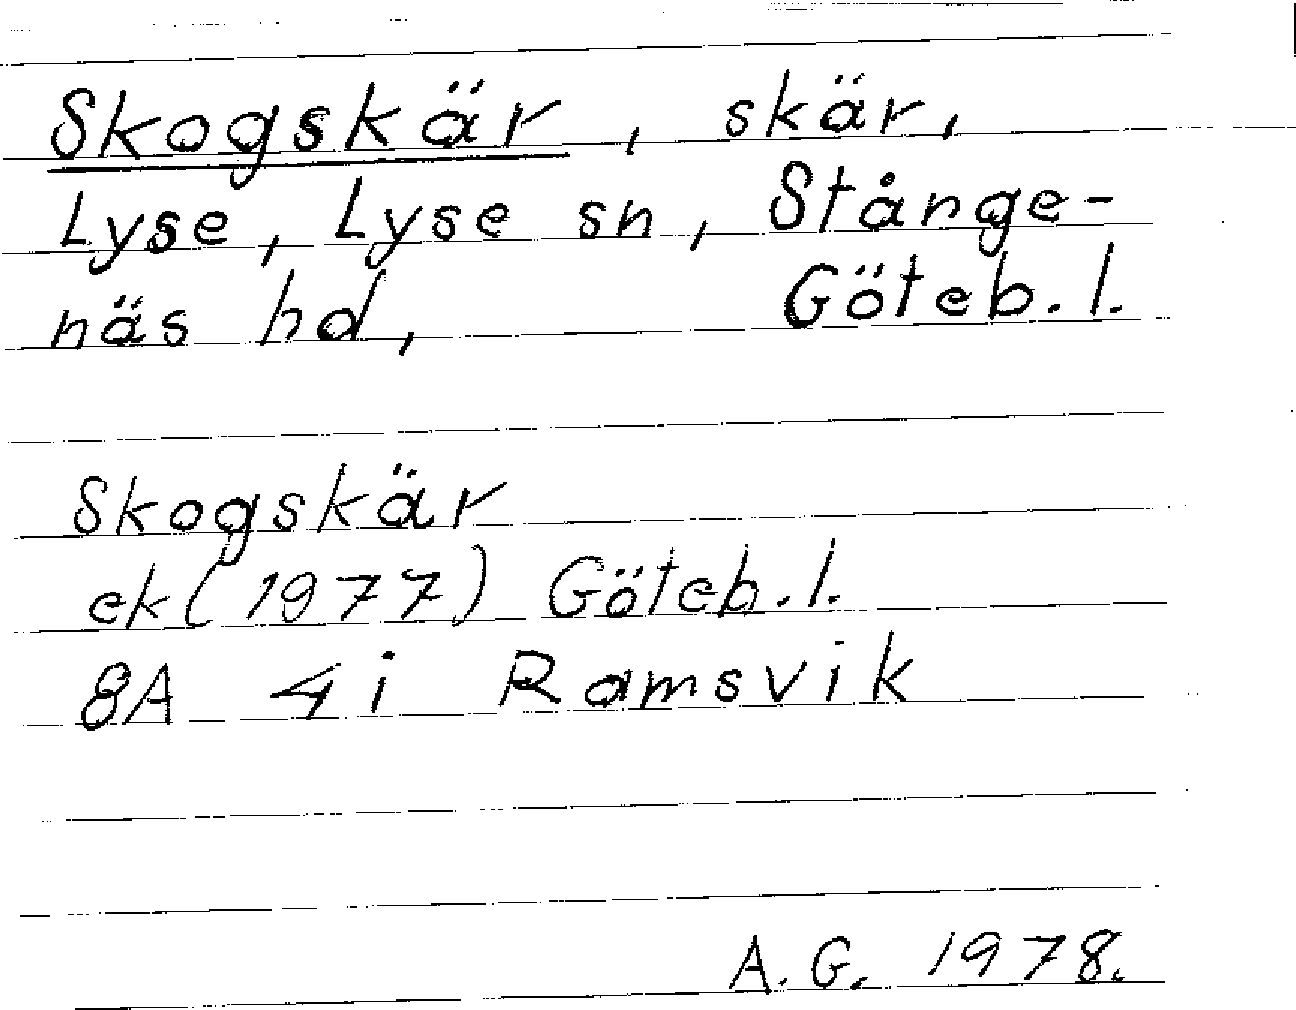 Skogskär, skär,
Lyse, Lyse sn, Stånge-
näs hd, Göteb. l.
Skogskär
ek (1977) Göteb. l.
8A 4i Ramsvik
A. G. 1978.